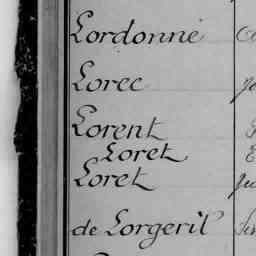 Lordonné
Lorec
Lorent
Loret
Loret
de Lorgeril